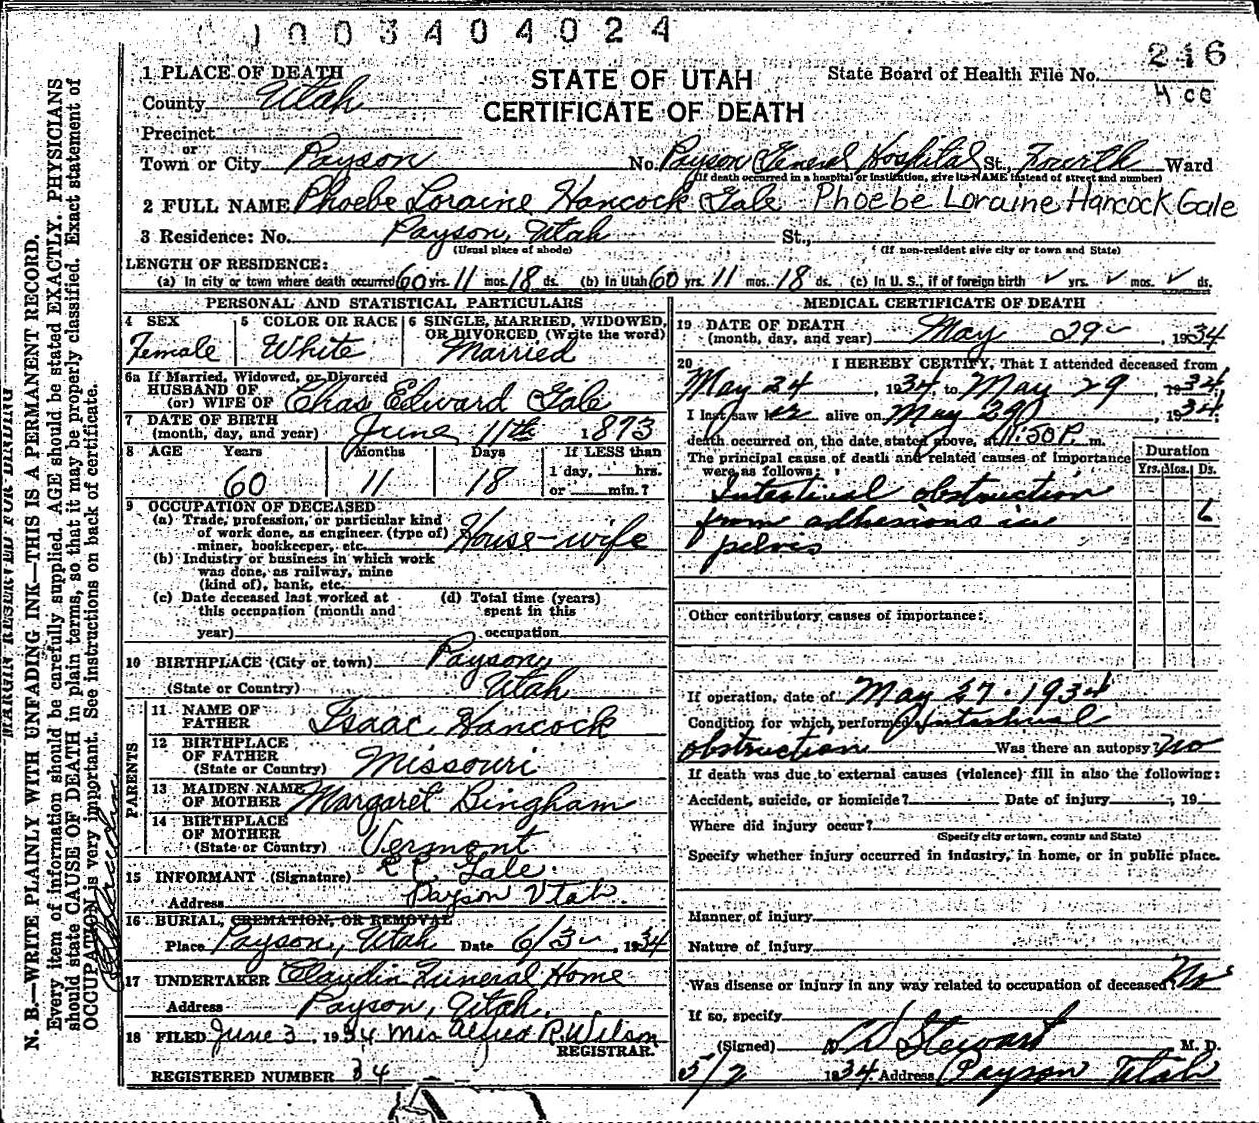 1003404024
216
4 cc
STATE OF UTAH
CERTIFICATE OF DEATH
State Board of Health File No.
1 PLACE OF DEATH
County Utah
Precinct
or
Town or City Payson No. Payson General Hospital St., Fourth Ward
(If death occurred in a hospital or institution, give its NAME instead of street and number)
2 FULL NAME Phoebe Loraine Hancock Gale Phoebe Loraine Hancock Gale
3 Residence: No. Payson, Utah St.,
(Usual place of abode) (If non-resident give city or town and State)
LENGTH OF RESIDENCE:
(a) In city or town where death occurred 60 yrs. 11 mos. 18 ds. (b) In Utah 60 yrs. 11 mos. 18 ds. (c) In U. S., if of foreign birth ✓ yrs. ✓ mos. ✓ ds.
PERSONAL AND STATISTICAL PARTICULARS
4 SEX 5 COLOR OR RACE 6 SINGLE, MARRIED, WIDOWED,
OR DIVORCED (Write the word)
Female White Married
6a If Married, Widowed, or Divorced
HUSBAND OF
(or) WIFE OF Chas Edward Gale
7 DATE OF BIRTH
(month, day, and year) June 11th 1873
8 AGE Years Months Days If LESS than
1 day, hrs.
60 11 18 or min.?
9 OCCUPATION OF DECEASED
(a) Trade, profession, or particular kind
of work done, as engineer (type of)
miner, bookkeeper, etc. House-wife
(b) Industry or business in which work
was done, as railway, mine
(kind of), bank, etc.
(c) Date deceased last worked at (d) Total time (years)
this occupation (month and spent in this
year) occupation
10 BIRTHPLACE (City or town) Payson,
(State or Country) Utah
PARENTS
11 NAME OF
FATHER Isaac Hancock
12 BIRTHPLACE
OF FATHER
(State or Country) Missouri
13 MAIDEN NAME
OF MOTHER Margaret Bingham
14 BIRTHPLACE
OF MOTHER
(State or Country) Vermont
15 INFORMANT (Signature) Gale
Address Payson Utah.
16 BURIAL, CREMATION, OR REMOVAL
Place Payson, Utah Date 6/3 , 1934
17 UNDERTAKER Claudin Funeral Home
Address Payson, Utah.
18 FILED June 3, 1934 Mrs Alfred R. Wilson
REGISTRAR.
REGISTERED NUMBER 34
MEDICAL CERTIFICATE OF DEATH
19 DATE OF DEATH
(month, day, and year) May 29 , 1934
20 I HEREBY CERTIFY, That I attended deceased from
May 24, 1934, to May 29, 1934
I last saw her alive on May 29, 1934.
death occurred on the date stated above, at 11:50 P. m.
The principal cause of death and related causes of importance
were as follows:
Duration
Yrs. Mos. Ds.
Intestinal obstruction
from adhesions in 6
pelvis
Other contributory causes of importance:
If operation, date of May 27 - 1934
Condition for which performed Intestinal
obstruction Was there an autopsy? No
If death was due to external causes (violence) fill in also the following:
Accident, suicide, or homicide? Date of injury , 19
Where did injury occur?
(Specify city or town, county and State)
Specify whether injury occurred in industry, in home, or in public place.
Manner of injury
Nature of injury
Was disease or injury in any way related to occupation of deceased? No
If so, specify
(Signed) Stewart M. D.
5/ 1934. Address Payson Utah
MARGIN RESERVED FOR BINDING
N. B.—WRITE PLAINLY WITH UNFADING INK—THIS IS A PERMANENT RECORD.
Every item of information should be carefully supplied. AGE should be stated EXACTLY. PHYSICIANS
should state CAUSE OF DEATH in plain terms, so that it may be properly classified. Exact statement of
OCCUPATION is very important. See instructions on back of certificate.